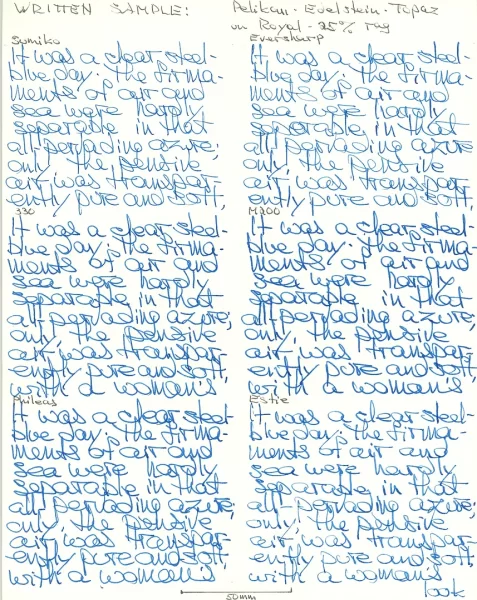 WRITTEN SAMPLE:
Pelikan - Edelstein - Topaz
on Royal - 25% rag
Sumiko
It was a clear steel-
blue day. the firma-
ments of air and
sea were hardly
separable in that
all pervading azure;
only the pensive
air was transpar-
ently pure and soft,
Eversharp
It was a clear steel-
blue day. the firma-
ments of air and
sea were hardly
separable in that
all pervading azure
only the pensive
air, was transpar-
ently pure and soft,
330
It was a clear steel-
blue day. the firma-
ments of air and
sea were hardly
separable in that
all pervading azure;
only, the pensive
air, was transpar-
ently pure and soft,
with a woman's
M200
It was a clear steel-
blue day. the firma-
ments of air and
sea were hardly
separable in that
all pervading azure,
only, the pensive
air, was transpar-
ently pure and soft,
with a woman's
Phileas
It was a clear steel
blue day. the firma-
ments of air and
sea were hardly
separable in that
all pervading azure;
only the pensive
air, was transpar-
ently pure and soft
with a woman's
Estie
It was a clear steel-
blue day. the firma-
ments of air and
sea were hardly
separable in that
all pervading azure;
only the pensive
air, was transpar-
ently pure and soft,
with a woman's
look
50mm